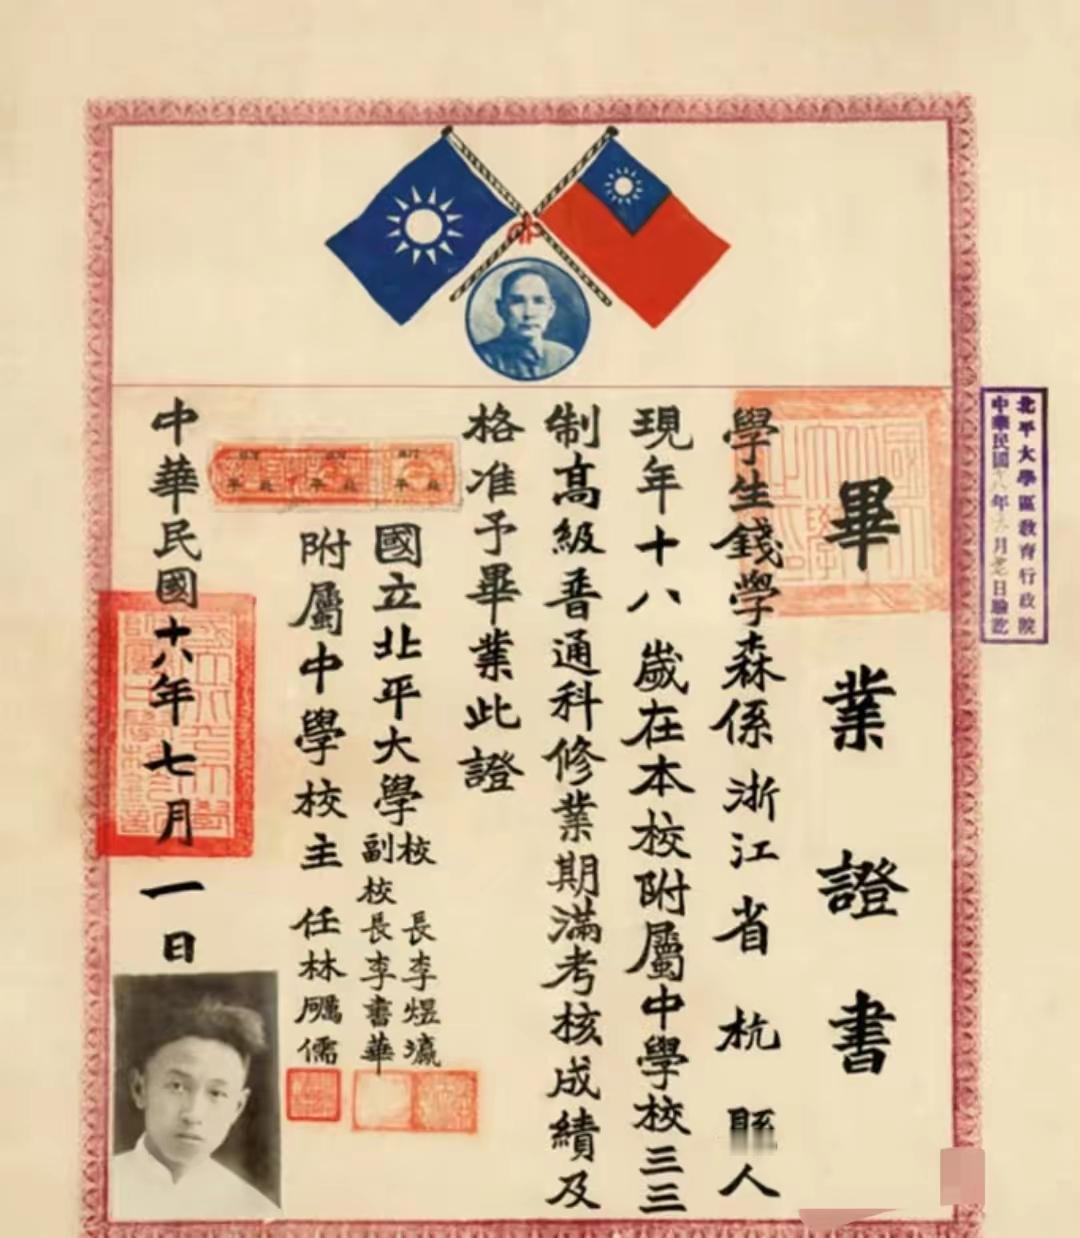 畢業證書
學生錢學森係浙江省杭縣人
現年十八歲在本校附屬中學校三三
制高級普通科修業期滿考核成績及
格准予畢業此證
國立北平大學
校長李煜瀛
副校長李書華
附屬中學校主任林礪儒
中華民國十八年七月一日
北平大學區教育行政院
中華民國十八年 月 日驗訖